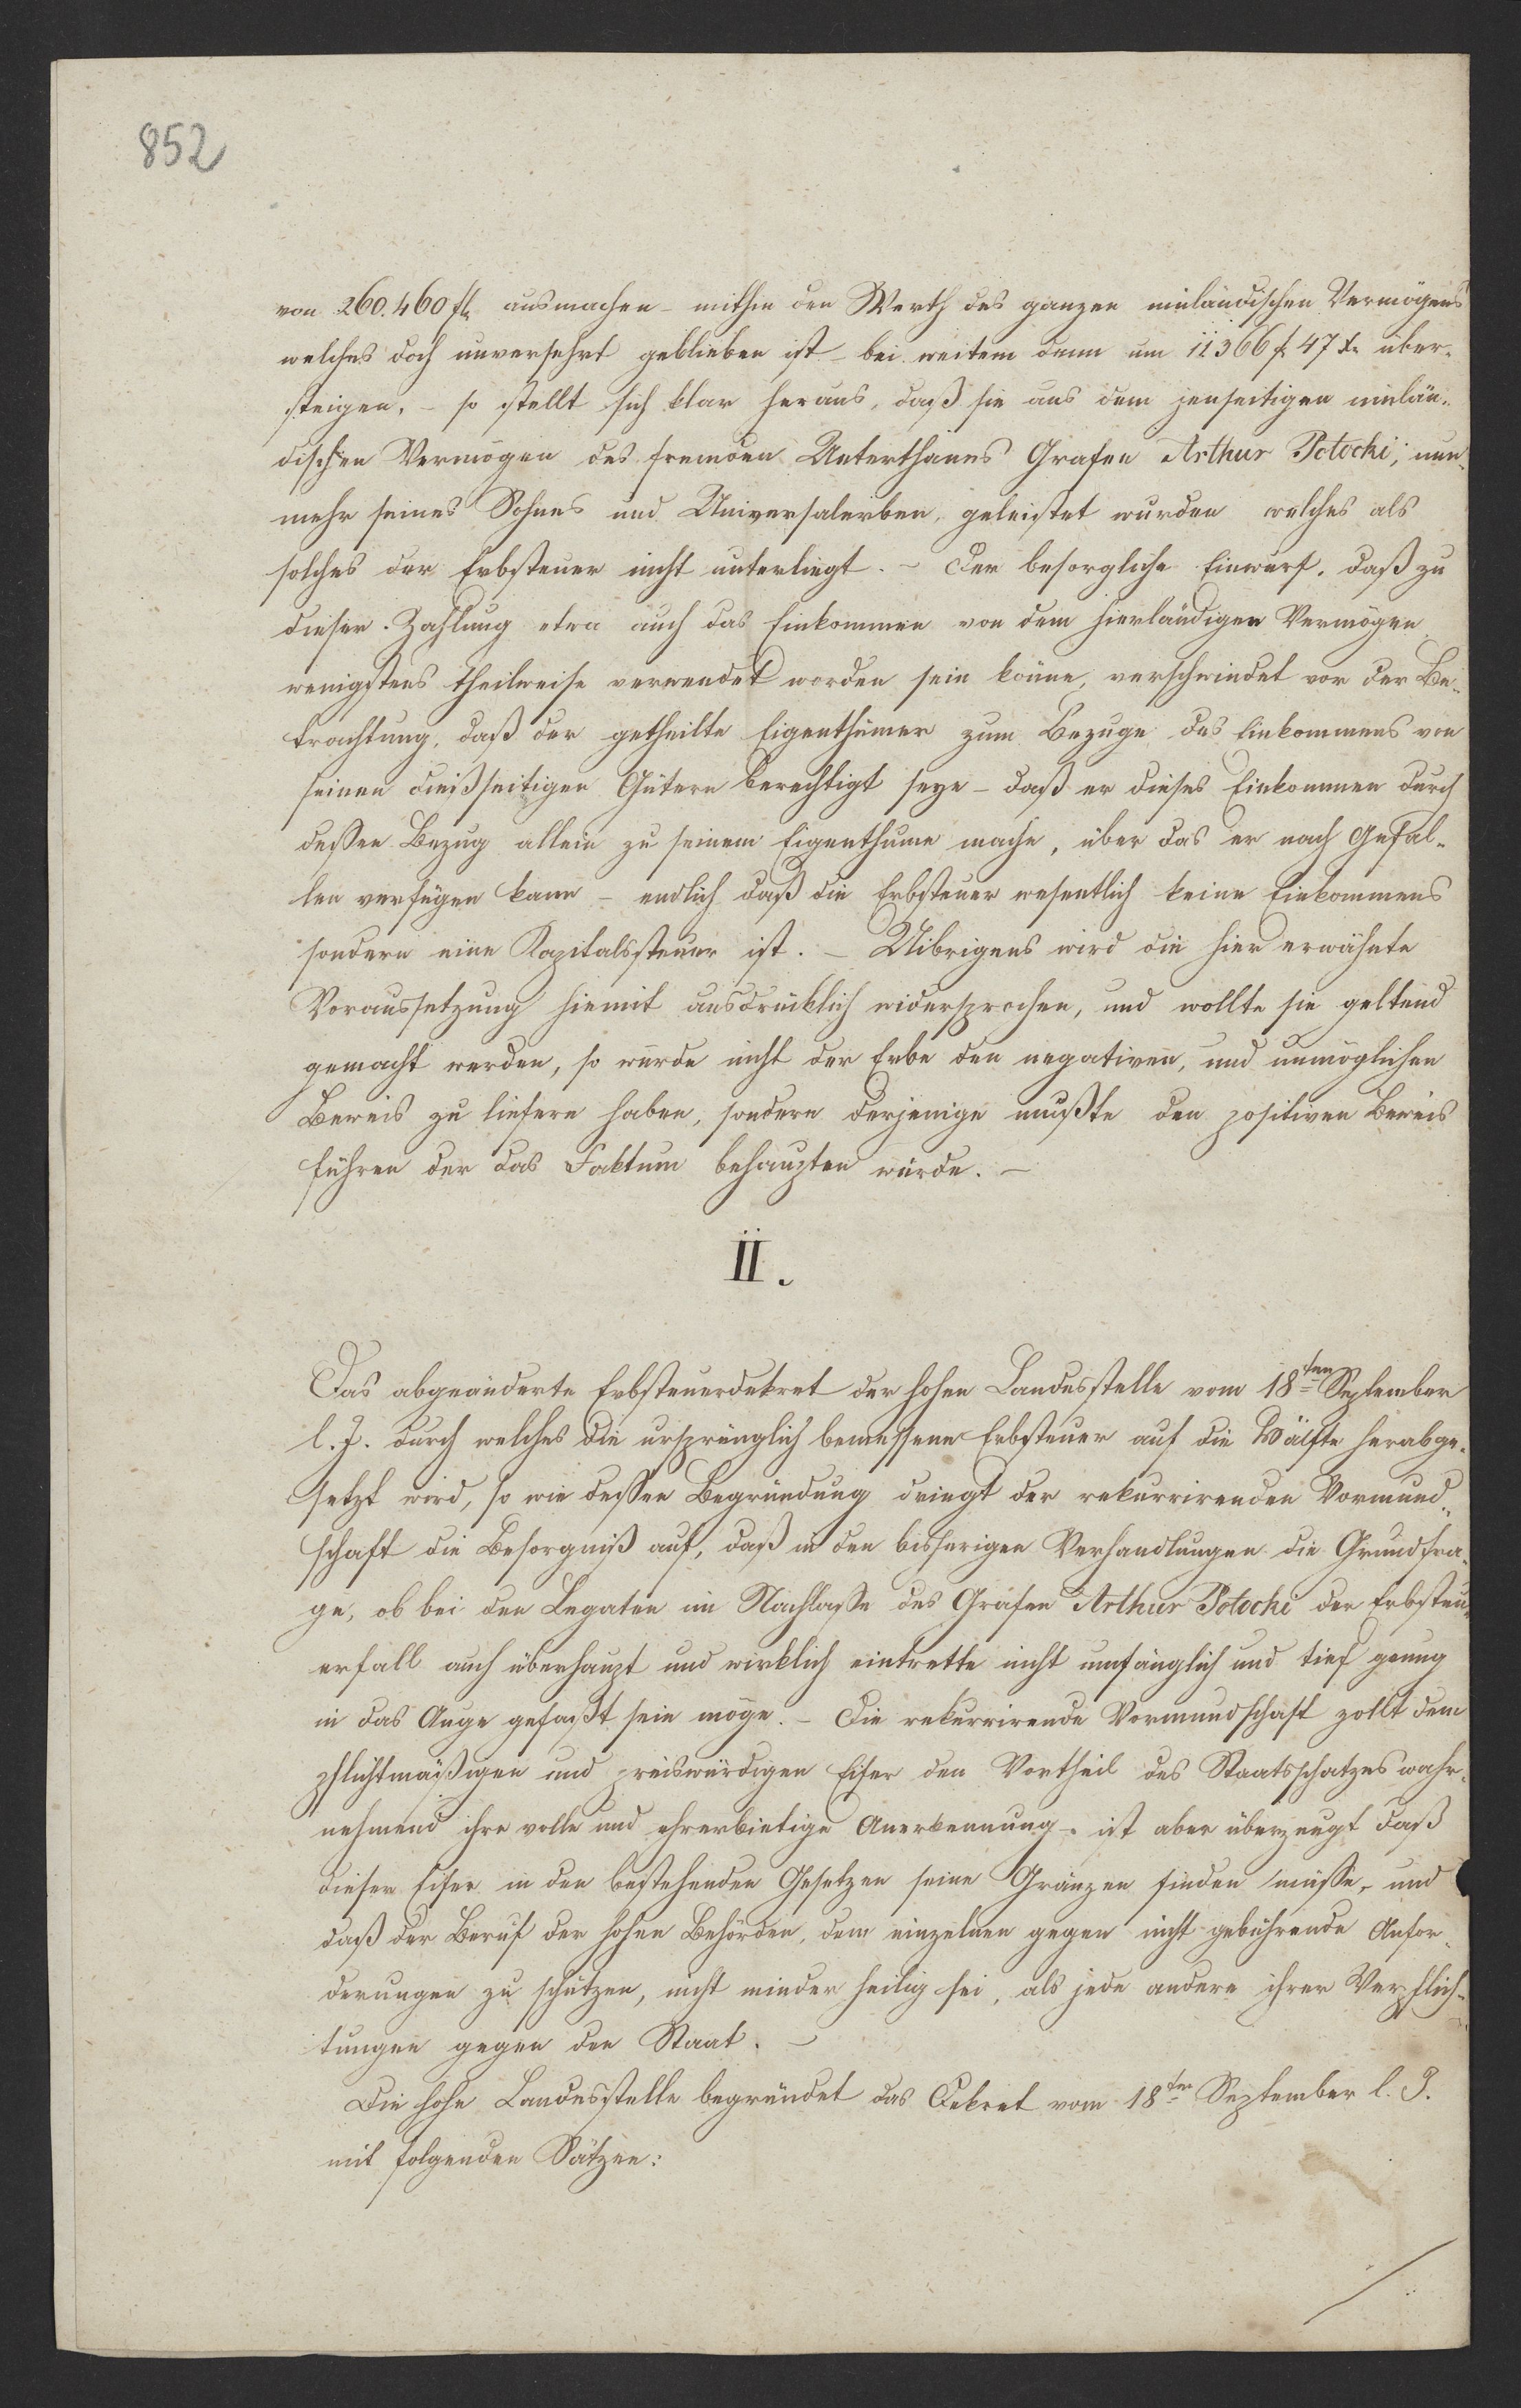 852
von 260.460 fl. ausmachen – mithin den Werth des ganzen einländischen Vermögens
welches doch unversehrt geblieben ist – bei weitem denn um 11366 f. 47 x. über-
steigen, – so stellt sich klar heraus, daß sie aus dem jenseitigen einlän-
dischen Vermögen des fremden Unterthanns Grafen Arthur Potocki, nun-
mehr seines Sohnes und Universalerben, geleistet wurden welches als
solches der Erbsteuer nicht unterliegt. – Der besorgliche Einwurf, daß zu
dieser Zahlung etwa auch das Einkommen von dem hierländigen Vermögen
wenigstens theilweise verwendet worden sein könne, verschwindet vor der Be-
trachtung, daß der getheilte Eigenthümer zum Bezuge des Einkommens von
seinen dießseitigen Gütern berechtigt seye – daß er dieses Einkommen durch
dessen Bezug allein zu seinem Eigenthume mache, über das er nach Gefal-
len verfügen kann – endlich daß die Erbsteuer wesentlich keine Einkommens
sondern eine Kapitalssteuer ist. – Uibrigens wird die hier erwähnte
Voraussetzung hiemit ausdrücklich widersprochen, und wollte sie geltend
gemacht werden, so würde nicht der Erbe den negativen, und unmöglichen
Beweis zu liefern haben, sondern derjenige mußte den positiven Beweis
führen der das Faktum behaupten würde. –
II.
Das abgeänderte Erbsteuerdekret der hohen Landesstelle vom 18ten September
l. J. durch welches die ursprünglich bemessene Erbsteuer auf die Hälfte herabge-
setzt wird, so wie dessen Begründung dringt der rekurrirenden Vormund-
schaft die Besorgniß auf, daß in den bisherigen Verhandlungen die Grundfra-
ge, ob bei den Legaten im Nachlasse des Grafen Arthur Potocki der Erbsteu-
erfall auch überhaupt und wirklich eintrette nicht umfänglich und tief genug
in das Auge gefaßt sein möge. – Die rekurrirende Vormundschaft zollt dem
pflichtmäßigen und preiswürdigen Eifer den Vortheil des Staatsschatzes wahr-
nehmend ihre volle und ehrerbietige Anerkennung – ist aber überzeugt daß
dieser Eifer in den bestehenden Gesetzen seine Gränzen finden müsse, und
daß der Beruf der hohen Behörden, dem einzelnen gegen nicht gebührende Anfor-
derungen zu schützen, nicht minder heilig sei, als jede andere ihrer Verpflich-
tungen gegen den Staat. –
Die hohe Landesstelle begründet das Dekret vom 18ten September l. J.
mit folgenden Sätzen: